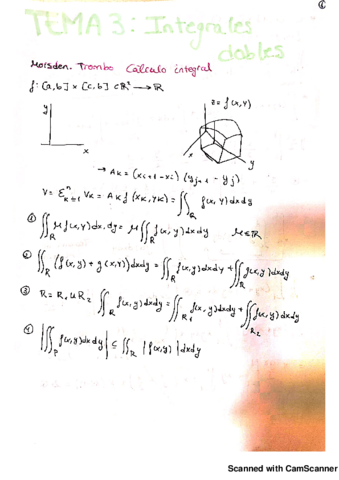 TEMA 3: Integrales
dobles
Marsden. Trombo Cálculo integral
f: [a,b] x [c,b] c ℝ² → ℝ
z = f(x,y)
y
x
x
y
→ AK = (xi+1 - xi) (yj+1 - yj)
V = Σⁿ_K=1 VK = AK f(xK, yK) = ∫∫_R f(x,y) dx dy
① ∬_R μ f(x,y) dx.dy = μ ∬_R f(x,y) dx dy μ ∈ ℝ
② ∬_R (f(x,y) + g(x,y)) dx dy = ∬_R f(x,y) dx dy + ∬_R g(x,y) dx dy
③ R = R1 u R2 ∬_R f(x,y) dx dy = ∬_R1 f(x,y) dx dy + ∬_R2 f(x,y) dx dy
④ |∬_R f(x,y) dx dy| ≤ ∬_R |f(x,y)| dx dy
Scanned with CamScanner